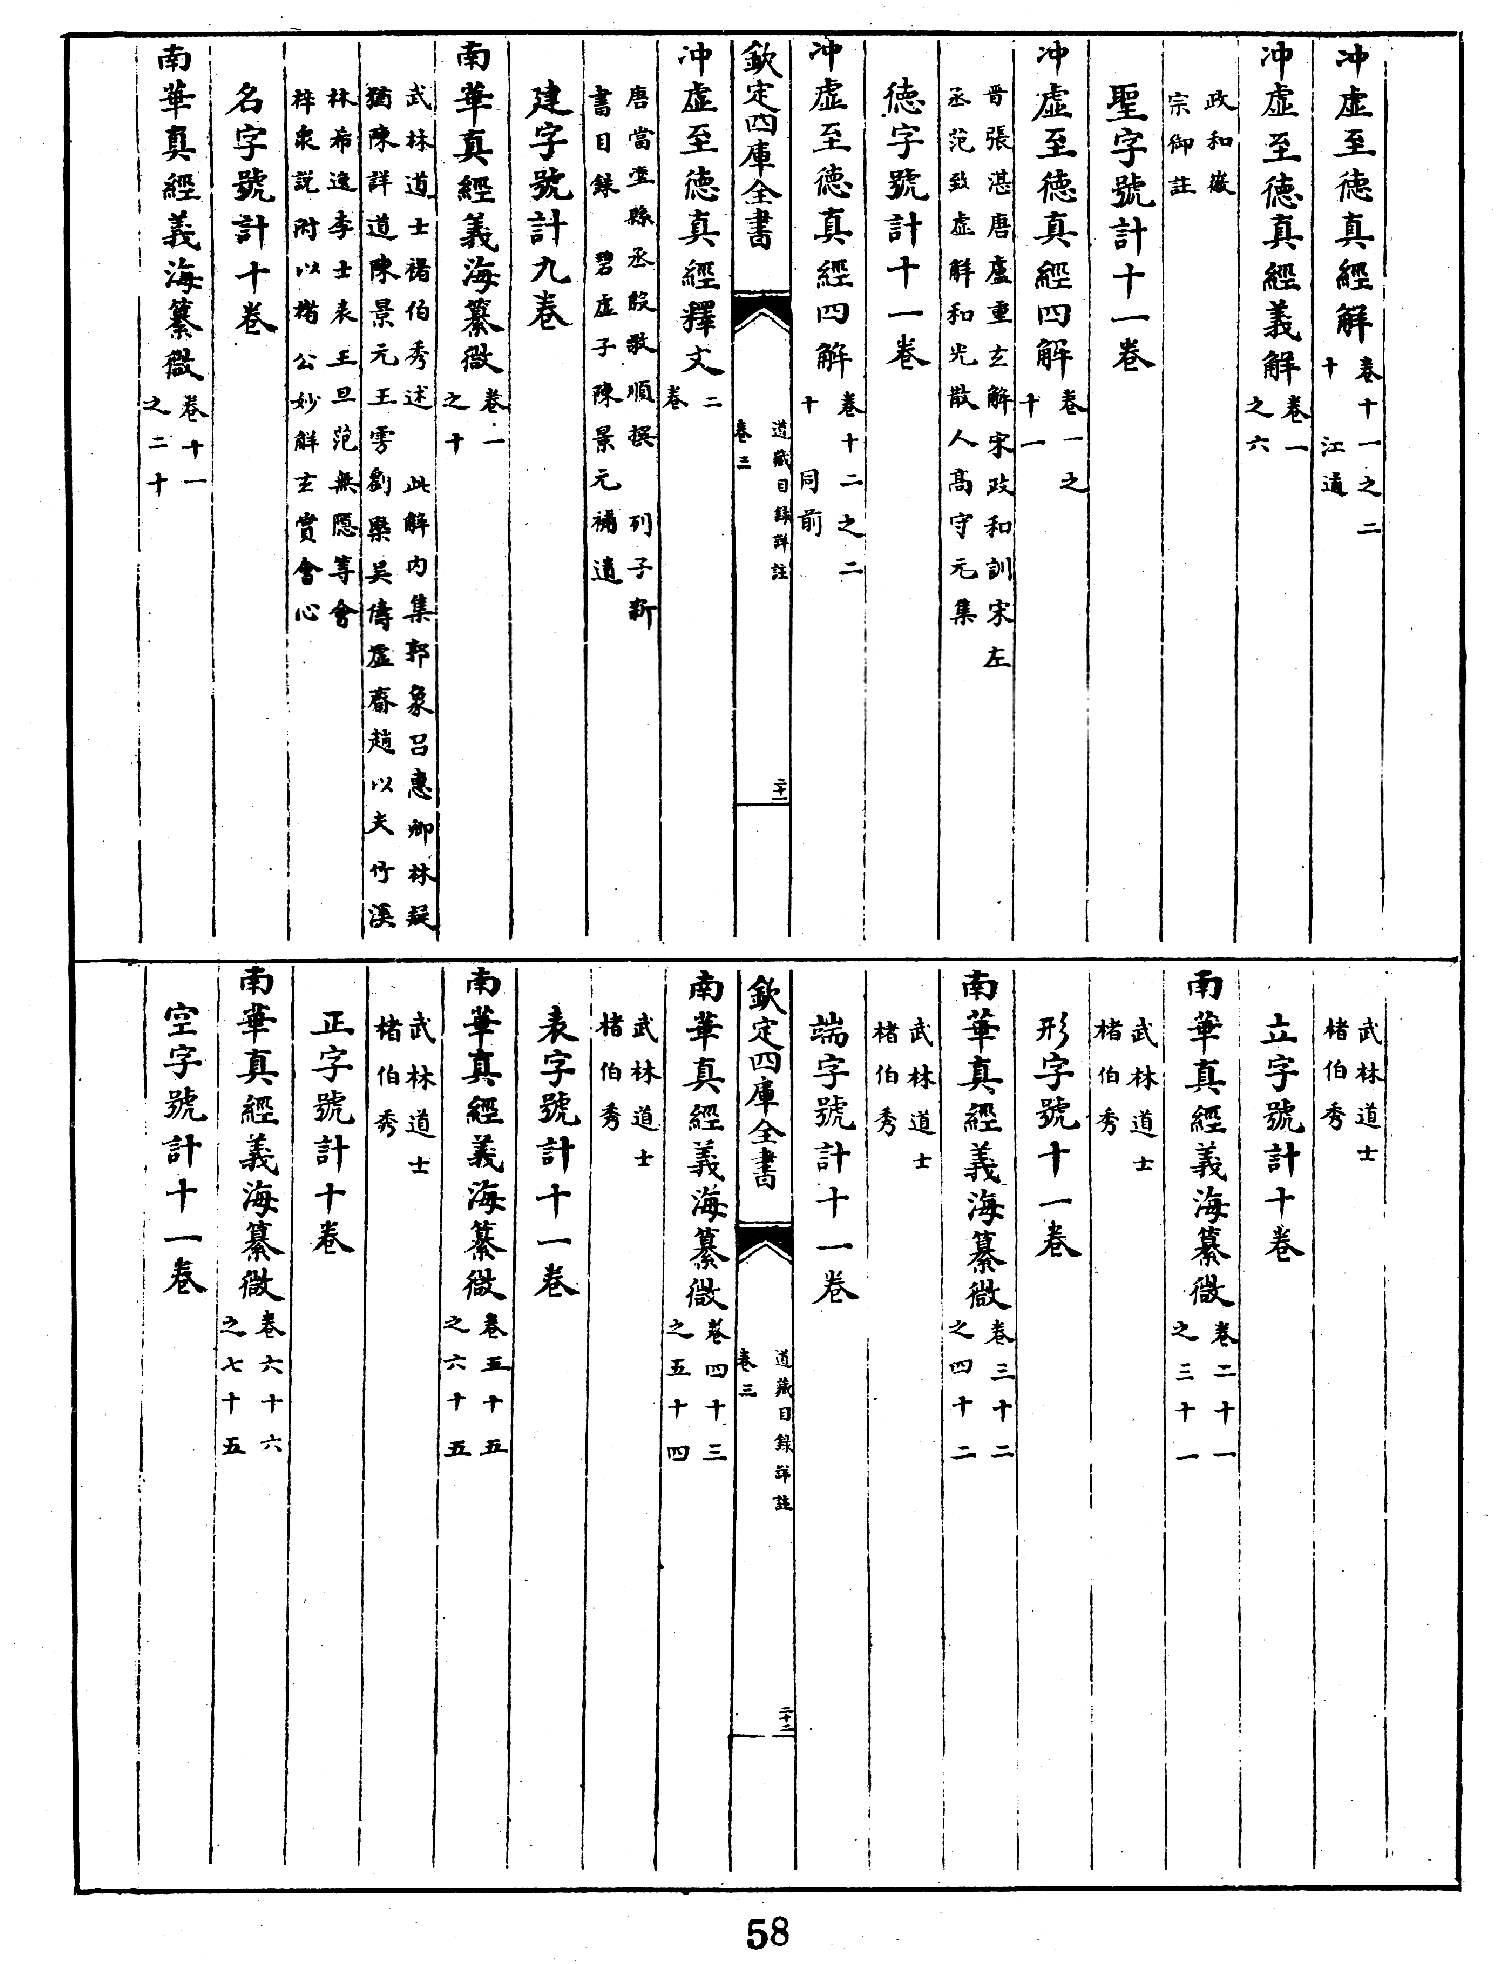 冲虚至德真經解卷十一之二
十　江遹
冲虚至德真經義解卷一
之六
政和徽
宗御註
聖字號計十一卷
冲虚至德真經四解卷一之
十一
晋張湛唐盧重玄解宋政和訓宋左
丞范致虚解和光散人髙守元集
德字號計十一卷
冲虚至德真經四解卷十二之二
十　同前
欽定四庫全書
道藏目録詳註
卷三
二十一
冲虚至德真經釋文二
卷
唐當塗縣丞殷敬順撰　列子新
書目録　碧虚子陳景元補遺
建字號計九卷
南華真經義海纂微卷一
之十
武林道士禇伯秀述　此解内集郭象吕惠卿林疑
獨陳詳道陳景元王雱劉槩吴儔虚齋趙以夫竹溪
林希逸李士表王旦范無隱等會
粹衆説附以褚公妙解玄賞會心
名字號計十卷
南華真經義海纂微卷十一
之二十
武林道士
楮伯秀
立字號計十卷
南華真經義海纂微卷二十一
之三十一
武林道士
楮伯秀
形字號十一卷
南華真經義海纂微卷三十二
之四十二
武林道士
楮伯秀
端字號計十一卷
欽定四庫全書
道藏目録詳註
卷三
二十二
南華真經義海纂微卷四十三
之五十四
武林道士
楮伯秀
表字號計十一卷
南華真經義海纂微卷五十五
之六十五
武林道士
楮伯秀
正字號計十卷
南華真經義海纂微卷六十六
之七十五
空字號計十一卷
58